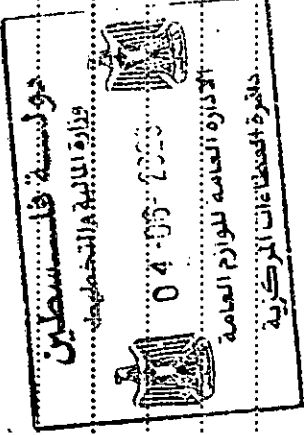 دولة فلسطين
وزارة المالية والتخطيط
04-06-2
الإدارة العامة للوازم العامة
دائرة العطاءات المركزية